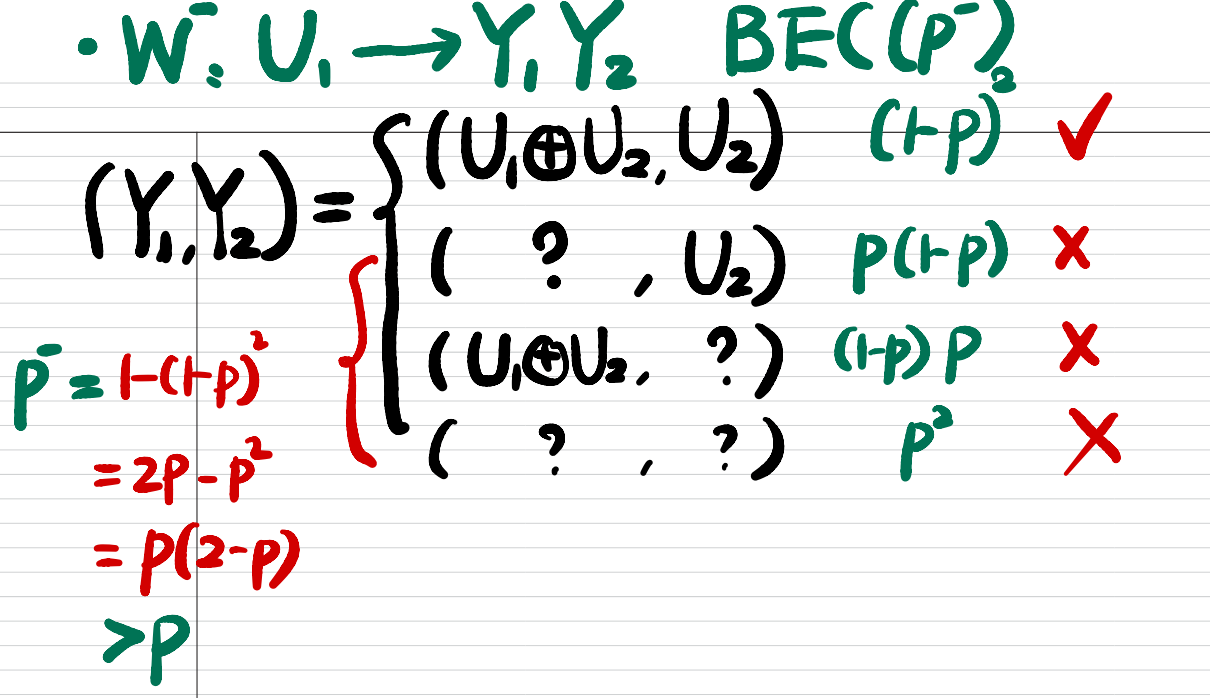 • W⁻: U₁ → Y₁Y₂ BEC(p⁻)
(Y₁, Y₂) = { (U₁⊕U₂, U₂) (1-p)² ✓
( ? , U₂) p(1-p) ×
(U₁⊕U₂, ?) (1-p)p ×
( ? , ?) p² ×
p⁻ = 1-(1-p)²
= 2p-p²
= p(2-p)
>p